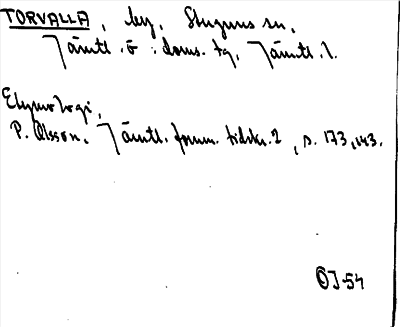 TORVALLA, by, Stuguns sn,
Jämtl. ö. doms. tg, Jämtl. l.
Etymologi,
P. Olsson, Jämtl. fornm. tidskr. 2, s. 173, 143.
OJ-54